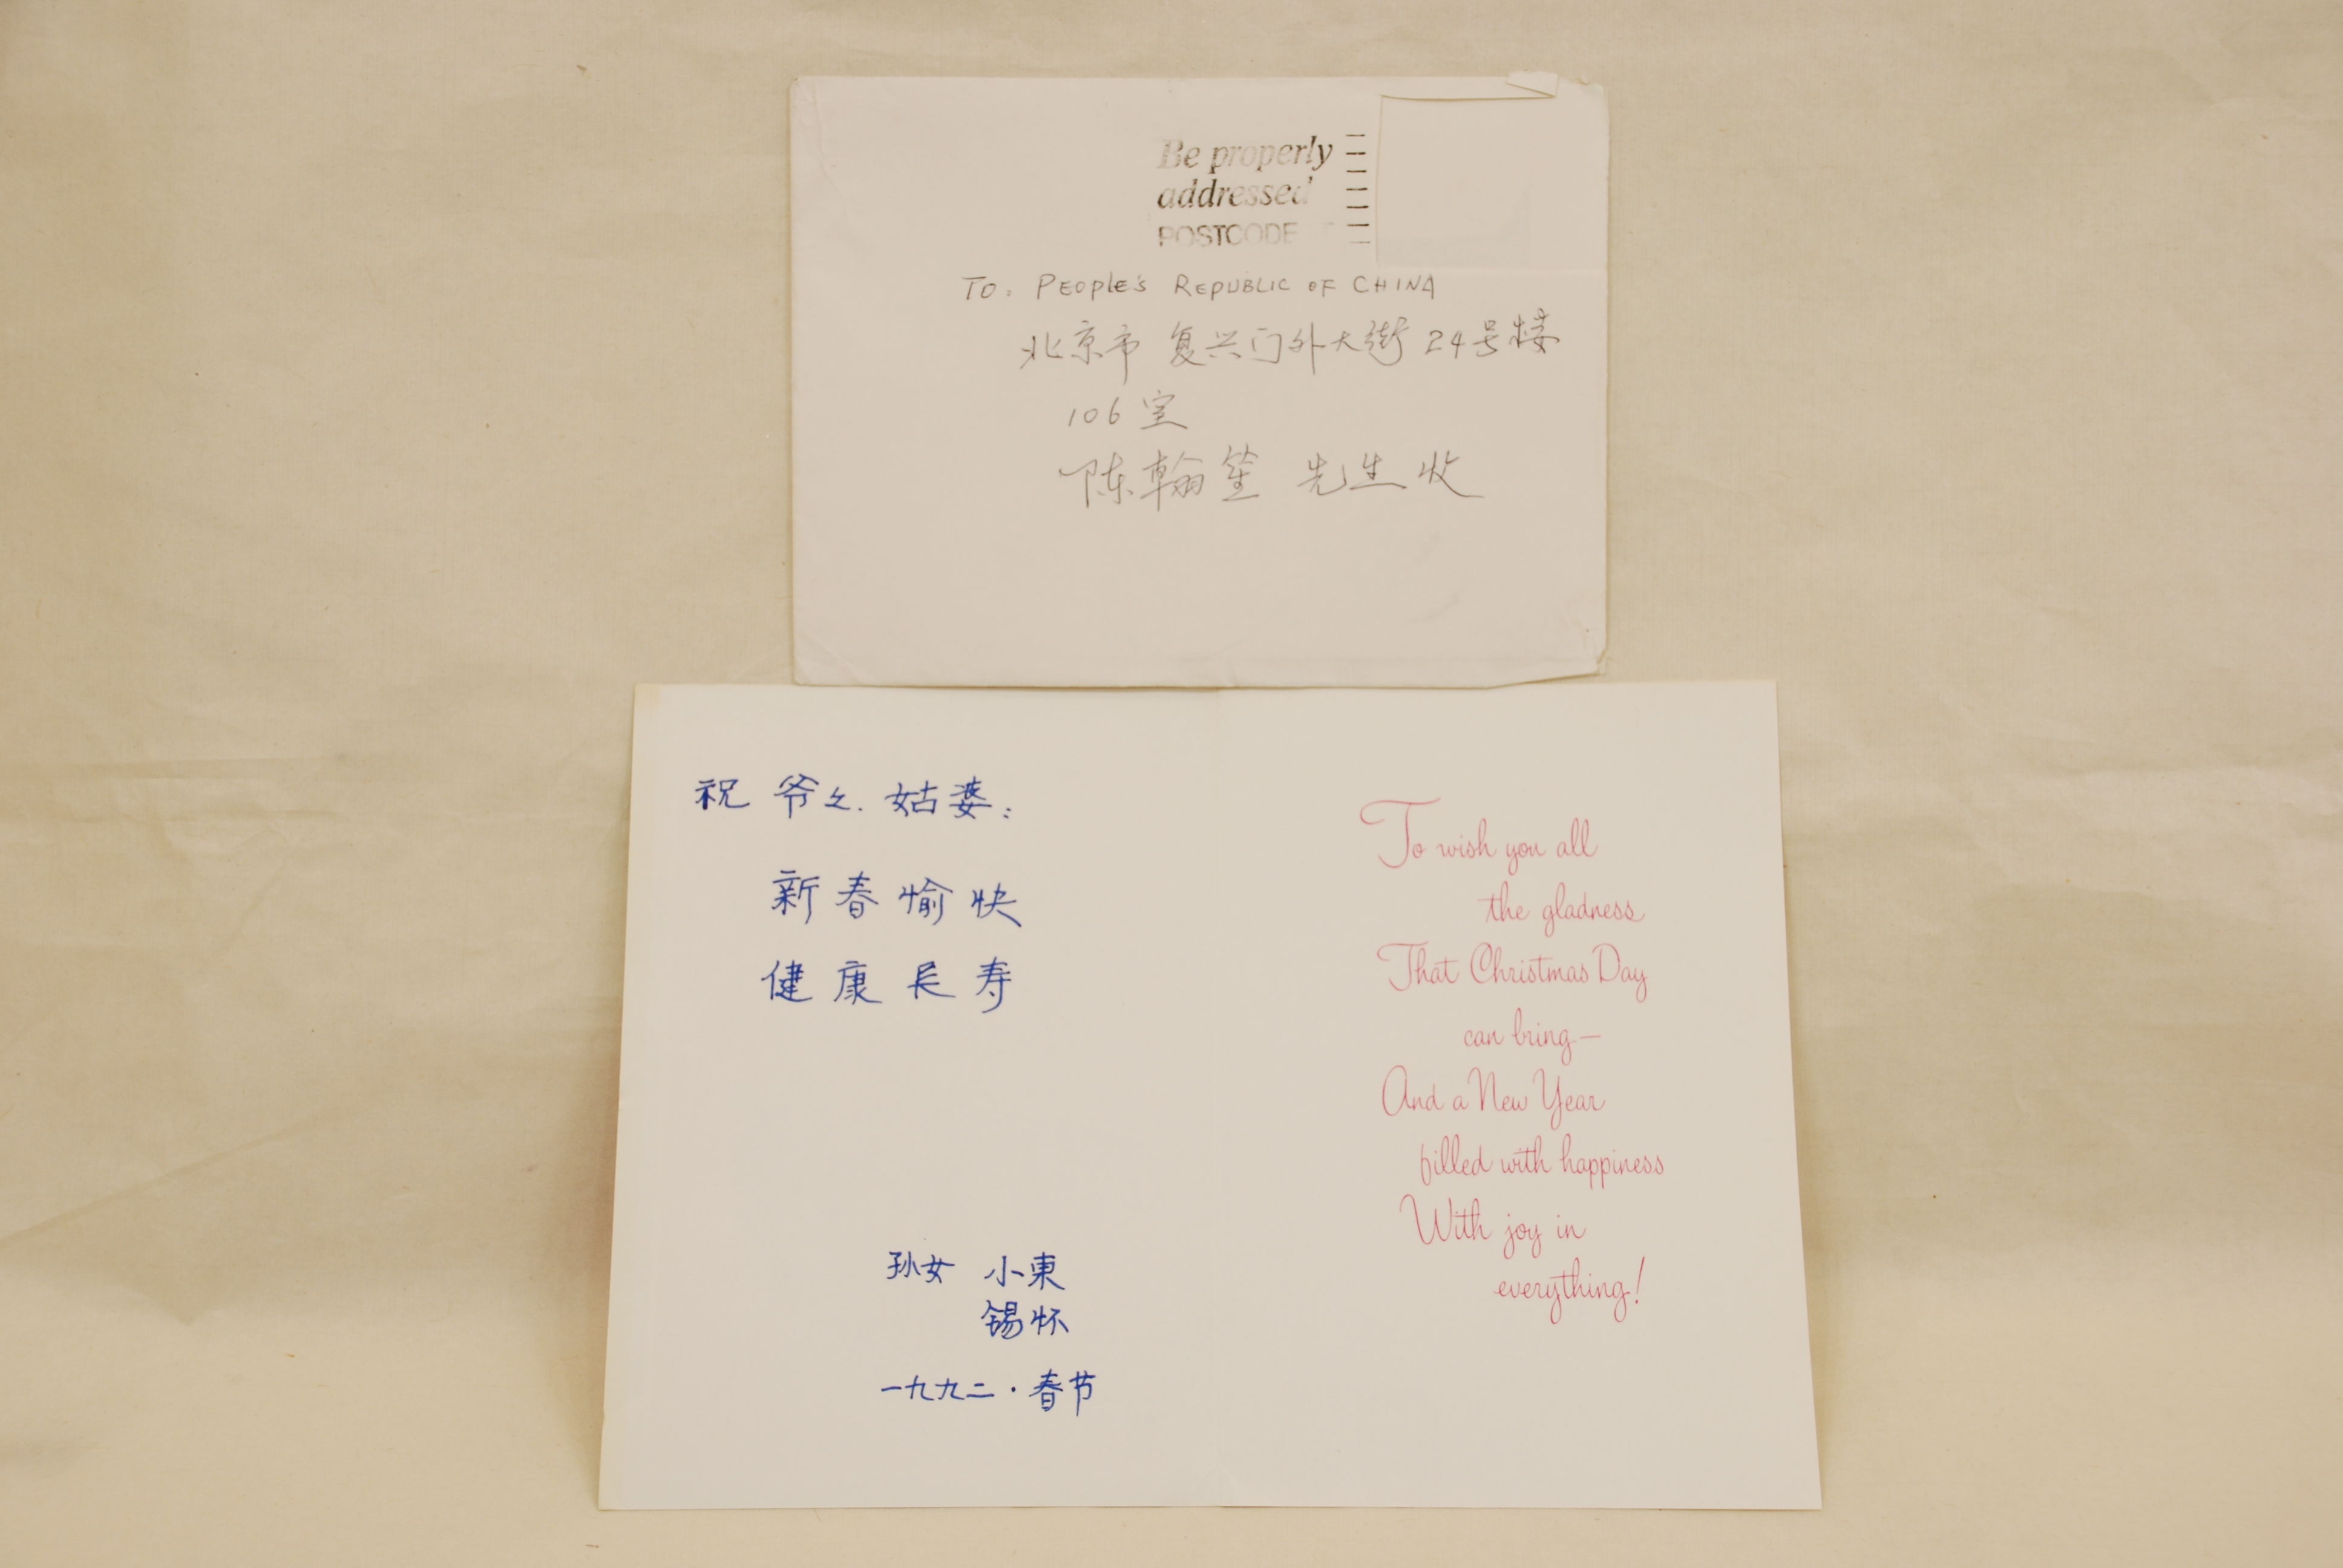 Be properly
addressed
POSTCODE
TO: PEOPLE'S REPUBLIC OF CHINA
北京市 复兴门外大街 24号楼
106室
陈翰笙 先生 收
祝 爷々. 姑婆:
新春愉快
健康长寿
孙女 小東
锡怀
一九九二·春节
To wish you all
the gladness
That Christmas Day
can bring—
And a New Year
filled with happiness
With joy in
everything!